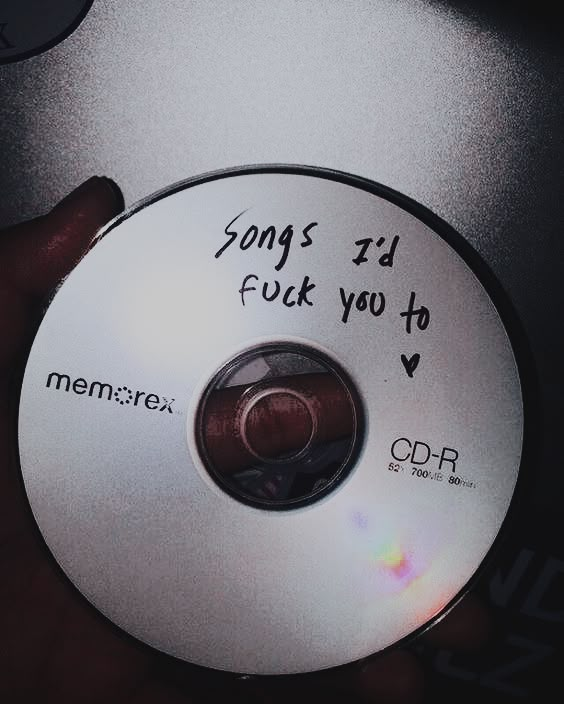 Songs I'd
fuck you to
♥
memorex
CD-R
52x 700MB 80min